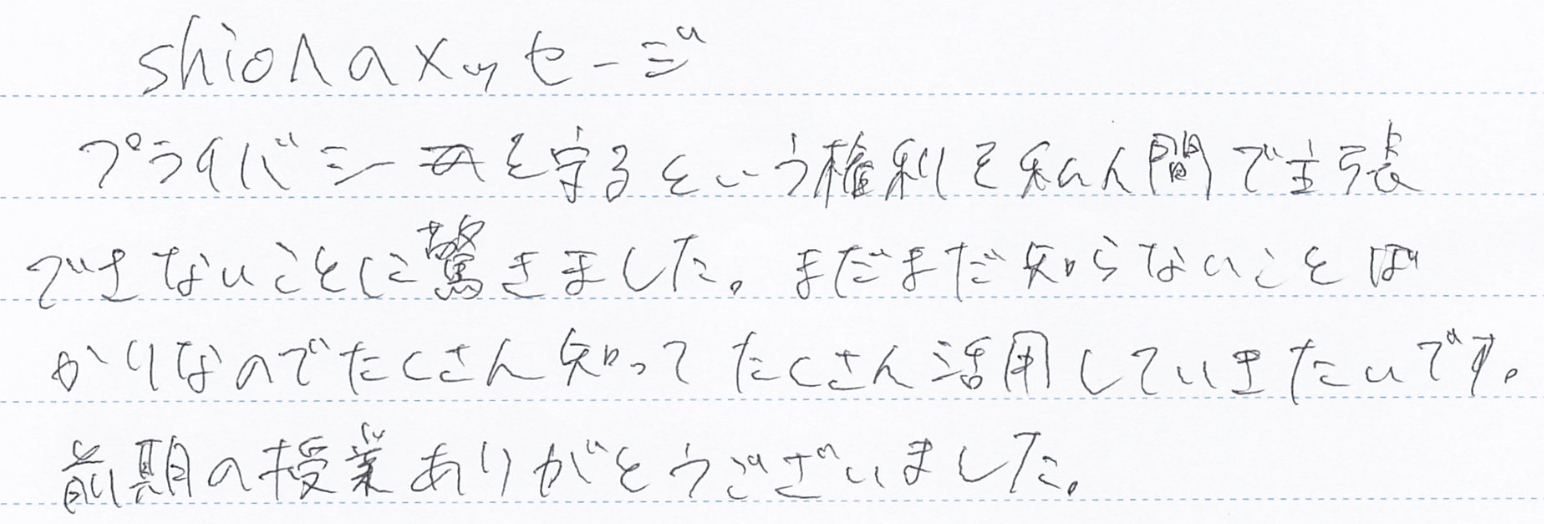 shioへのメッセージ
プライバシーを守るという権利を私人間で主張
できないことに驚きました。まだまだ知らないことば
かりなのでたくさん知ってたくさん活用していきたいです。
前期の授業ありがとうございました。